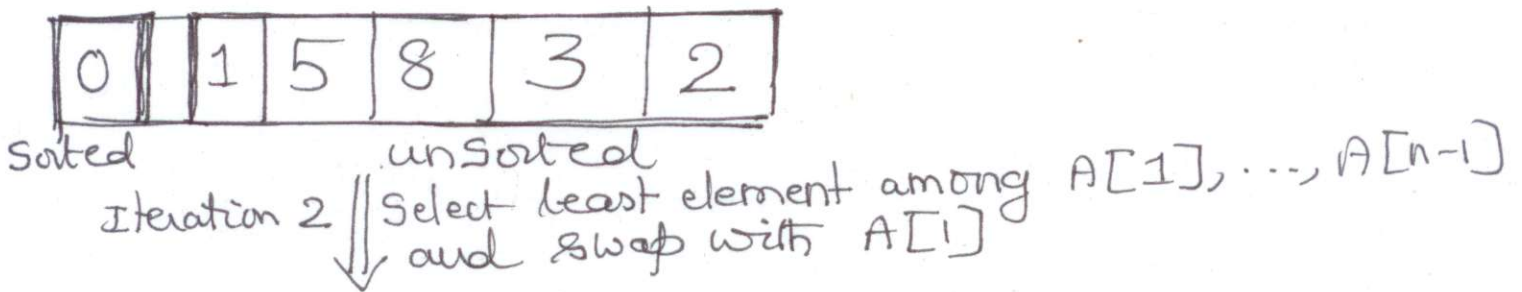 0 1 5 8 3 2
Sorted unsorted
Iteration 2 Select least element among A[1], ..., A[n-1]
and swap with A[1]